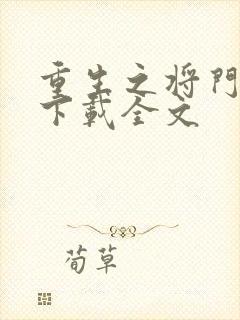 重生之将門
下載全文
荀草